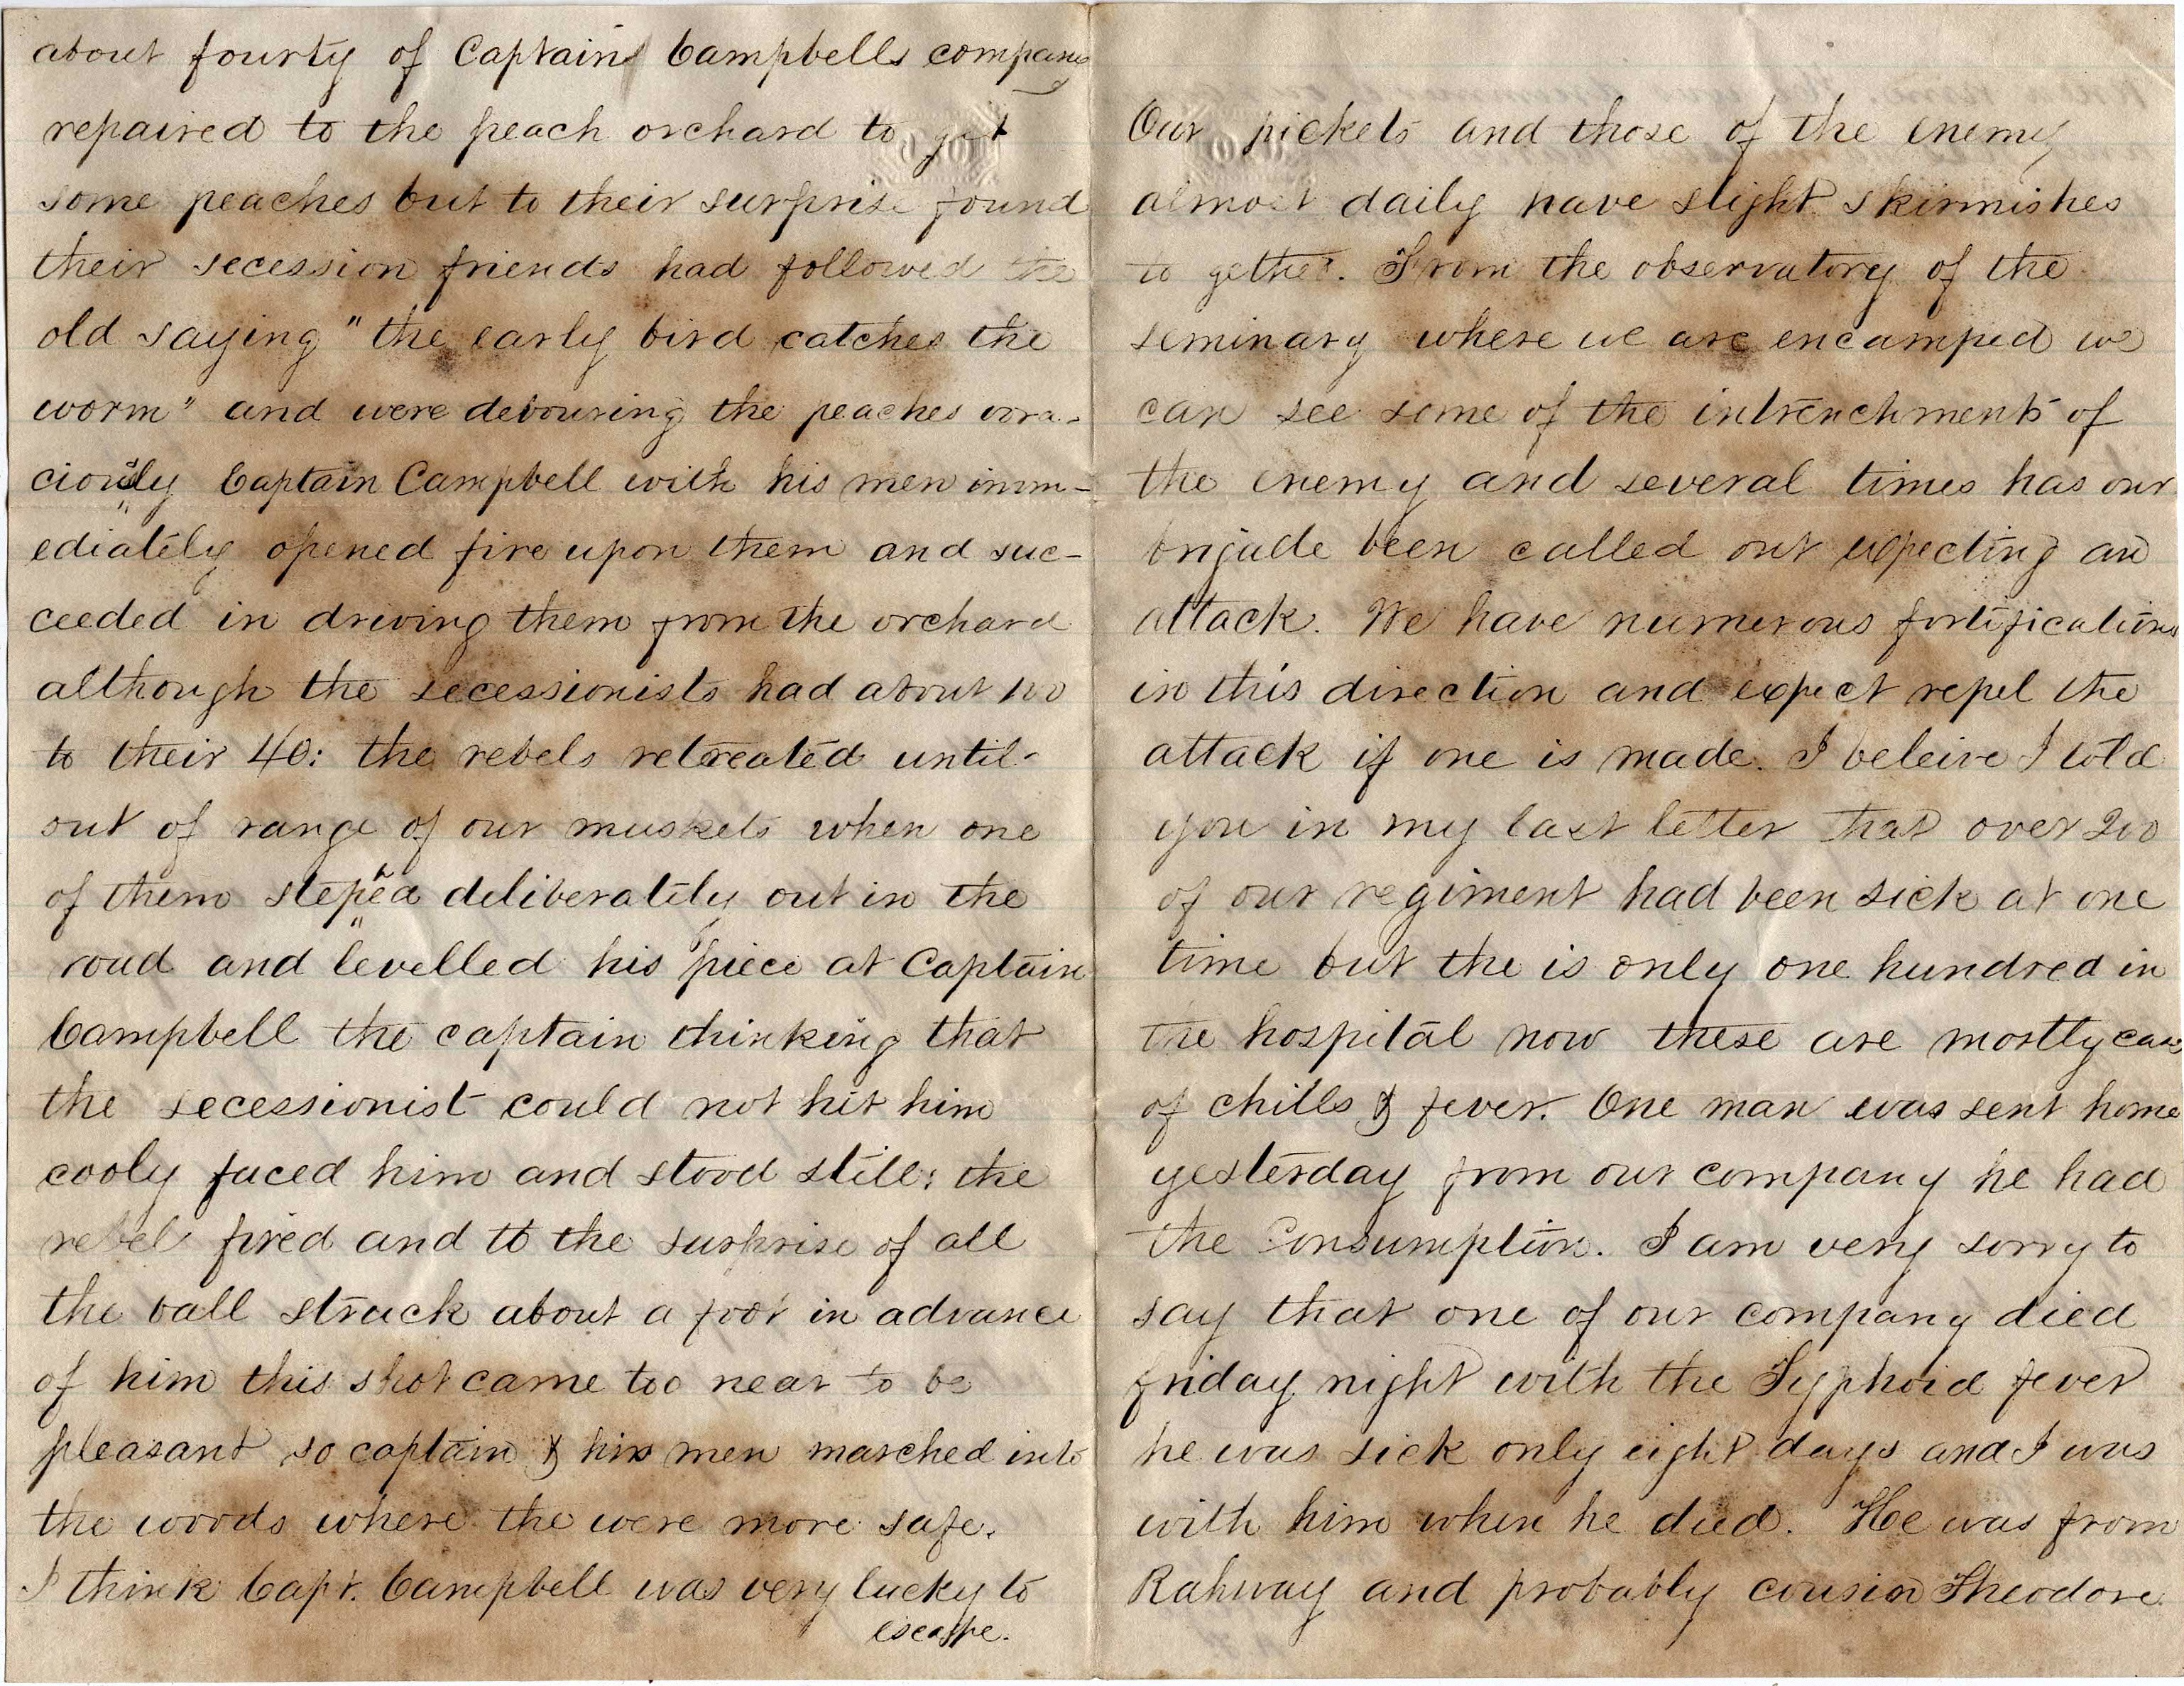 about fourty of Captains Campbells company
repaired to the peach orchard to get
some peaches but to their surprise found
their secession friends had followed the
old saying "the early bird catches the
worm" and were devouring the peaches vora-
ciously Captain Campbell with his men imm-
ediately opened fire upon them and suc-
ceeded in driving them from the orchard
although the secessionists had about 100
to their 40: the rebels retreated until
out of range of our muskets when one
of them steped deliberately out in the
road and levelled his piece at Captain
Campbell the captain thinking that
the secessionist could not hit him
cooly faced him and stood still: the
rebel fired and to the surprise of all
the ball struck about a foot in advance
of him this shot came too near to be
pleasant so captain & his men marched into
the woods where the were more safe.
I think Capt. Campbell was very lucky to
escape.
Our pickets and those of the enemy
almost daily have slight skirmishes
to gether. From the observatory of the
seminary where we are encamped we
can see some of the intrenchments of
the enemy and several times has our
brigade been called out expecting an
attack. We have numerous fortifications
in this direction and expect repel the
attack if one is made. I beleive I told
you in my last letter that over 200
of our regiment had been sick at one
time but the is only one hundred in
the hospital now these are mostly case
of chills & fever. One man was sent home
yesterday from our company he had
the Consumption. I am very sorry to
say that one of our company died
friday night with the Typhoid fever
he was sick only eight days and I was
with him when he died. He was from
Rahway and probably cousin Theodore